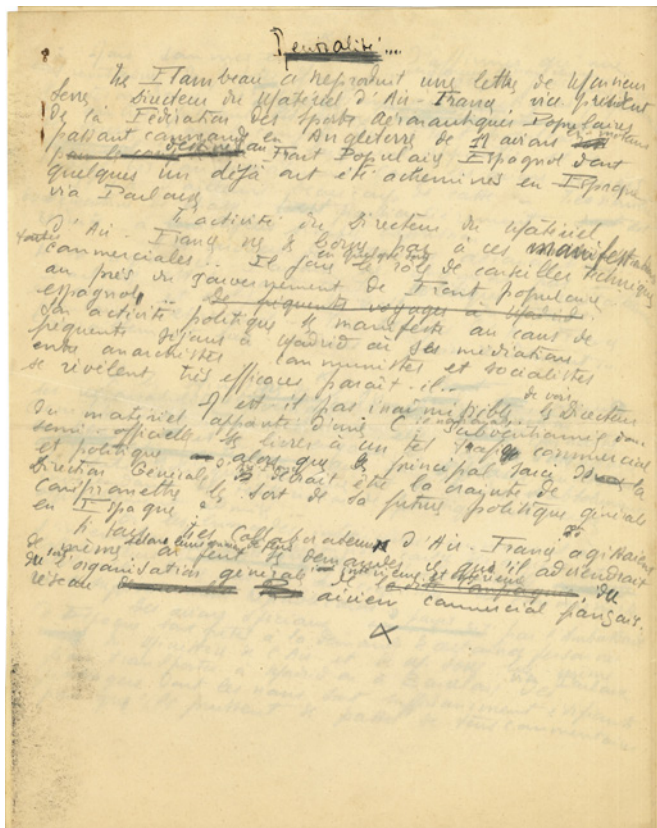 Neutralité...
Le Flambeau a reproduit une lettre de Monsieur
Serre, Directeur du Matériel d'Air-France, vice président
de la Fédération des sports aéronautiques Populaires
passant commande en Angleterre de avions et moteurs
destinés au Front Populaire Espagnol dont
quelques un déjà ont été acheminés en Espagne
via Toulouse
L'activité du Directeur du Matériel
d'Air-France ne se borne pas à ces manifestations
toutes commerciales.. Il joue en quelque sorte le rôle de conseiller technique
au près du gouvernement de Front populaire
espagnol... de fréquents voyages à Madrid.
Son activité politique se manifeste au cours de
fréquents séjours à Madrid où ses médiations
entre anarchistes communistes et socialistes
se révèlent très efficaces paraît-il..
N'est-il pas inadmissible de voir le Directeur
du matériel appointé d'une Cie nationale subventionnée donc
semi-officielle se livrer à un tel trafic commercial
et politique alors que le principal souci de la
Direction Générale d'Air France devrait être la crainte de
compromettre le sort de sa future politique générale
en Espagne ?
Si tous les collaborateurs d'Air-France agissaient
de même on peut se demander ce qu'il adviendrait
de l'organisation générale du
réseau aérien commercial français.